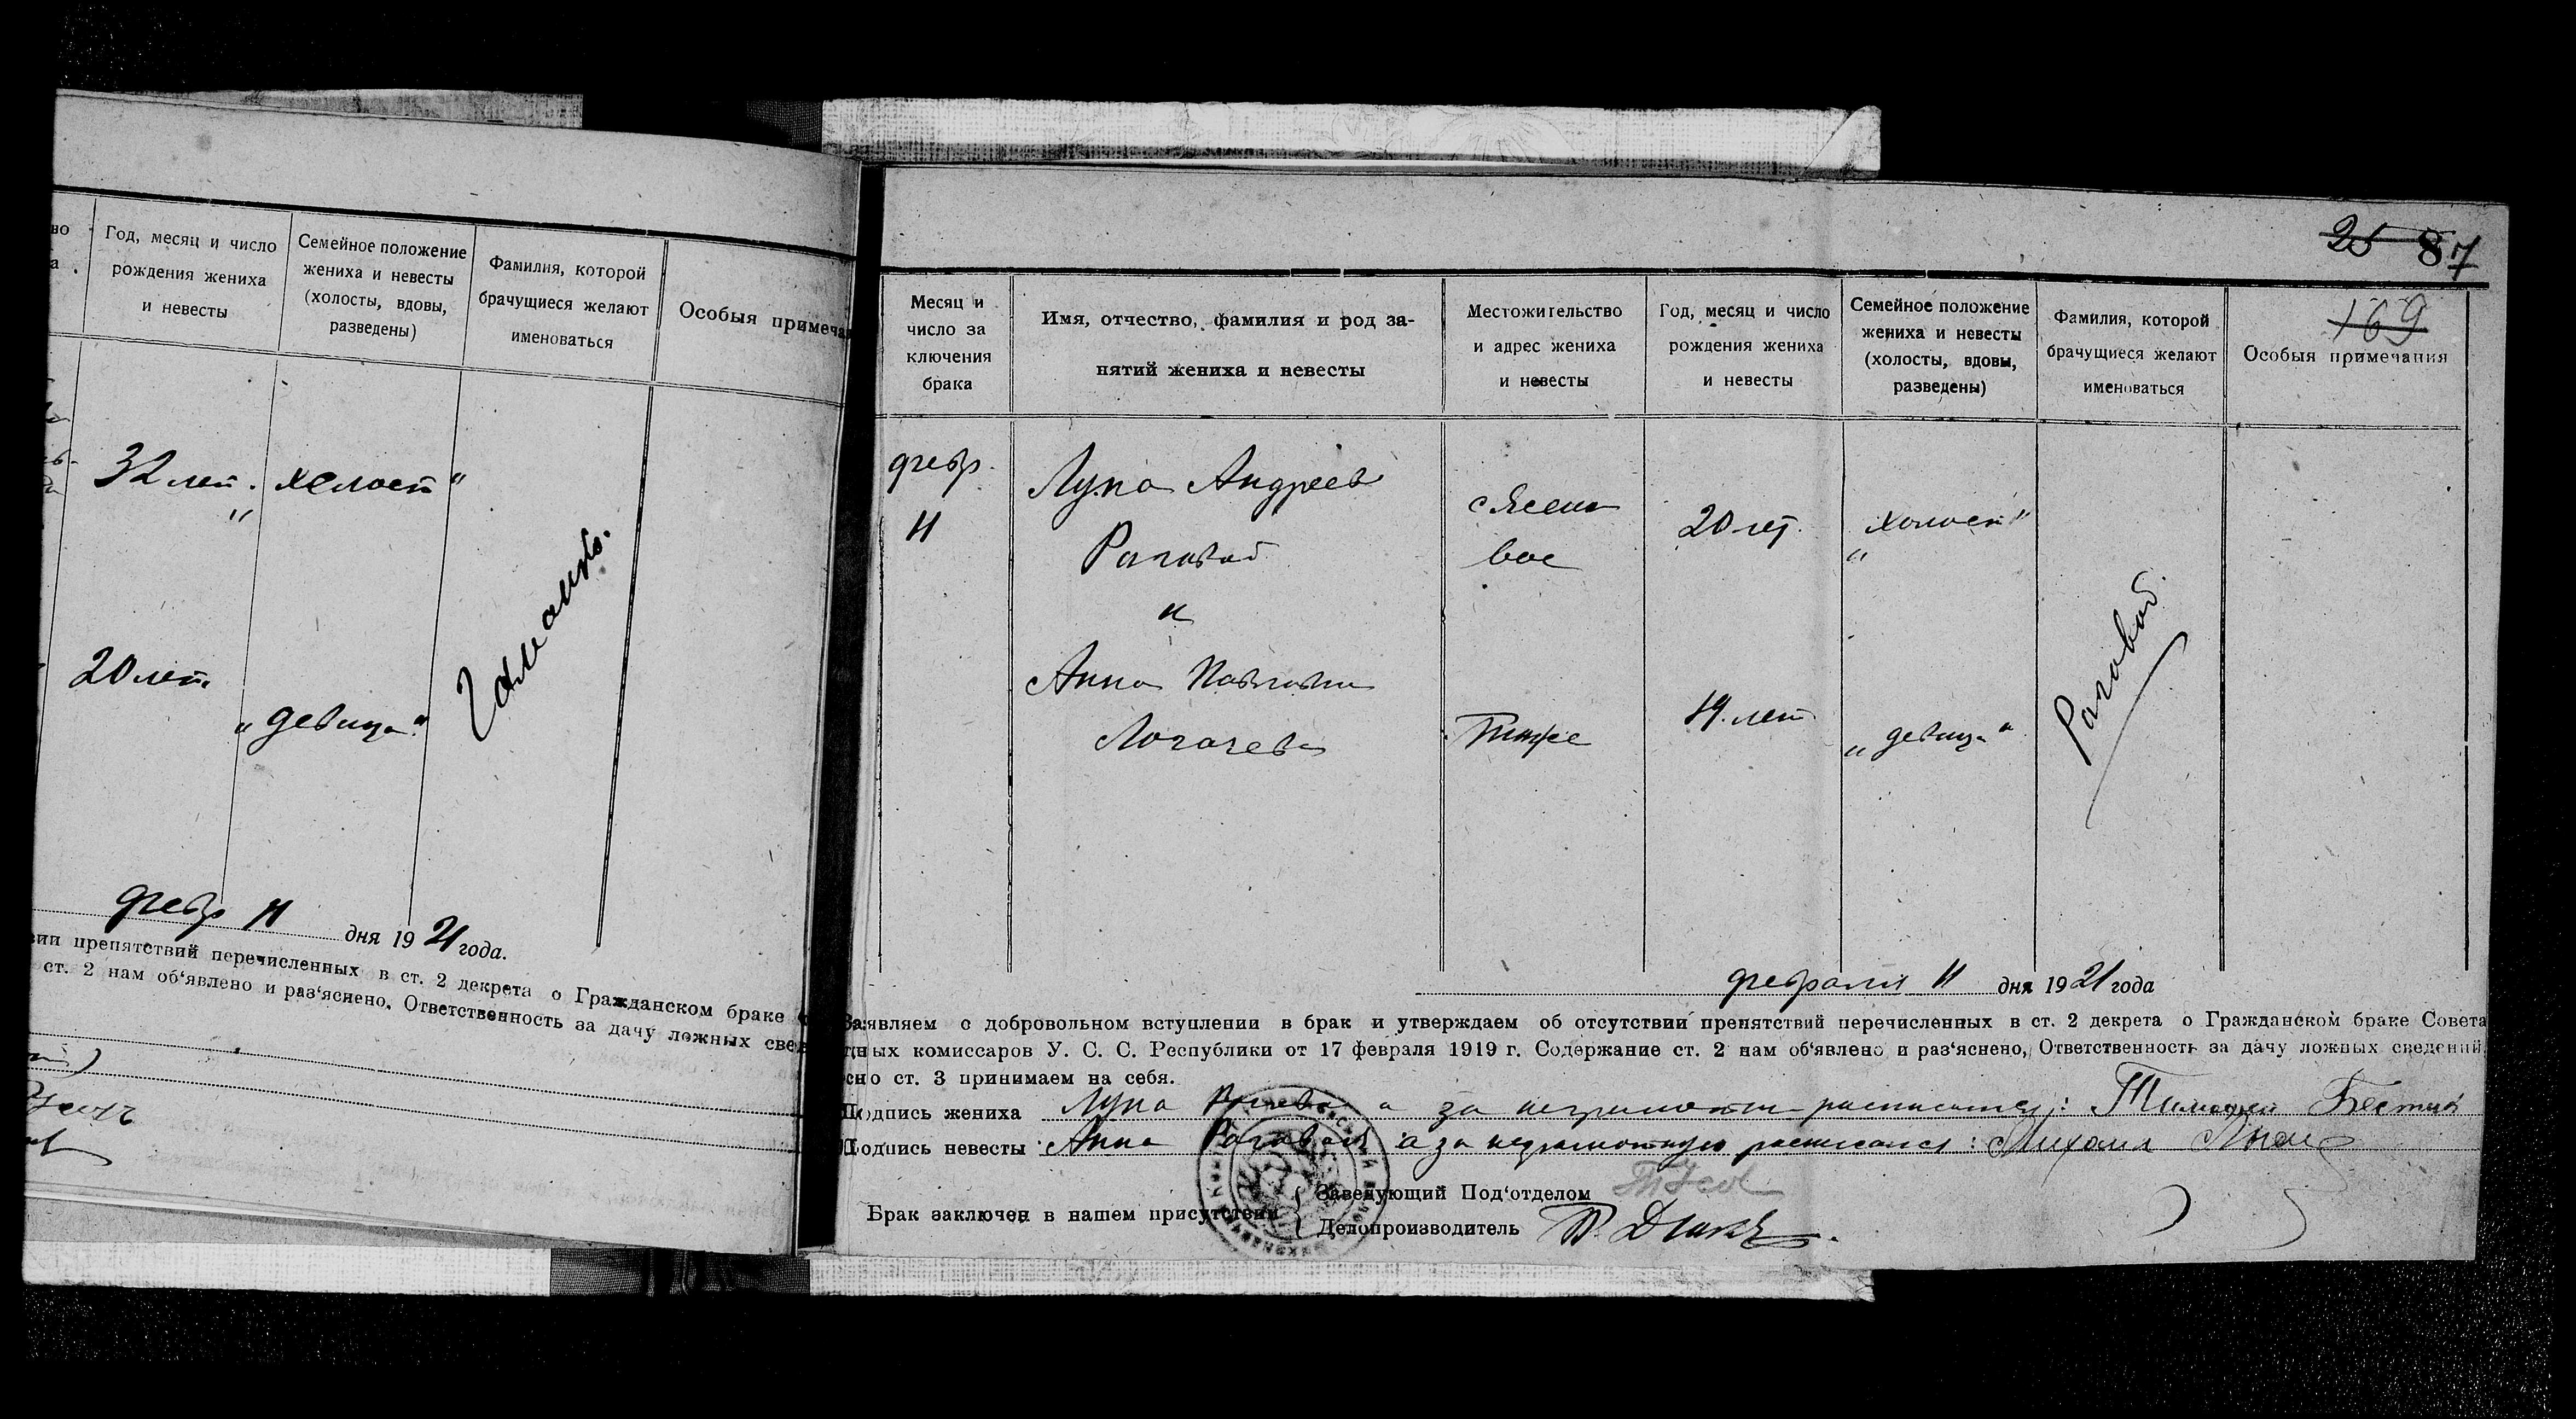 Год, месяц и число
рождения жениха
и невесты
Семейное положение
жениха и невесты
(холосты, вдовы,
разведены)
Фамилия, которой
брачущиеся желают
именоваться
Особыя примеча
32 лет.
"холост"
20 лет.
"девица"
февр 11 дня 1921 года.
препятствий перечисленных в ст. 2 декрета о Гражданском браке
ст. 2 нам об'явлено и раз'яснено. Ответственность за дачу ложных свед
25 87
169
Месяц и
число за
ключения
брака
Имя, отчество, фамилия и род за-
нятий жениха и невесты
Местожительство
и адрес жениха
и невесты
Год, месяц и число
рождения жениха
и невесты
Семейное положение
жениха и невесты
(холосты, вдовы,
разведены)
Фамилия, которой
брачущиеся желают
именоваться
Особыя примечания
февр.
11
Лупа Андреев
Роговой
и
Анна Павловна
Логачева
с Ясено
вое
Тоже
20 лет.
19. лет
"холост"
"девица"
Роговой
февраля 11 дня 1921 года
Заявляем о добровольном вступлении в брак и утверждаем об отсутствии препятствий перечисленных в ст. 2 декрета о Гражданском браке Совета
ных комиссаров У. С. С. Республики от 17 февраля 1919 г. Содержание ст. 2 нам об'явлено и раз'яснено, Ответственность за дачу ложных сведений
сно ст. 3 принимаем на себя.
Подпись жениха Лупа а за неграмотн расписался: Тимофей
Подпись невесты Анна Роговая а за неграмотную расписался: Михаил
Заведующий Под'отделом
Брак заключен в нашем присутствии
Делопроизводитель